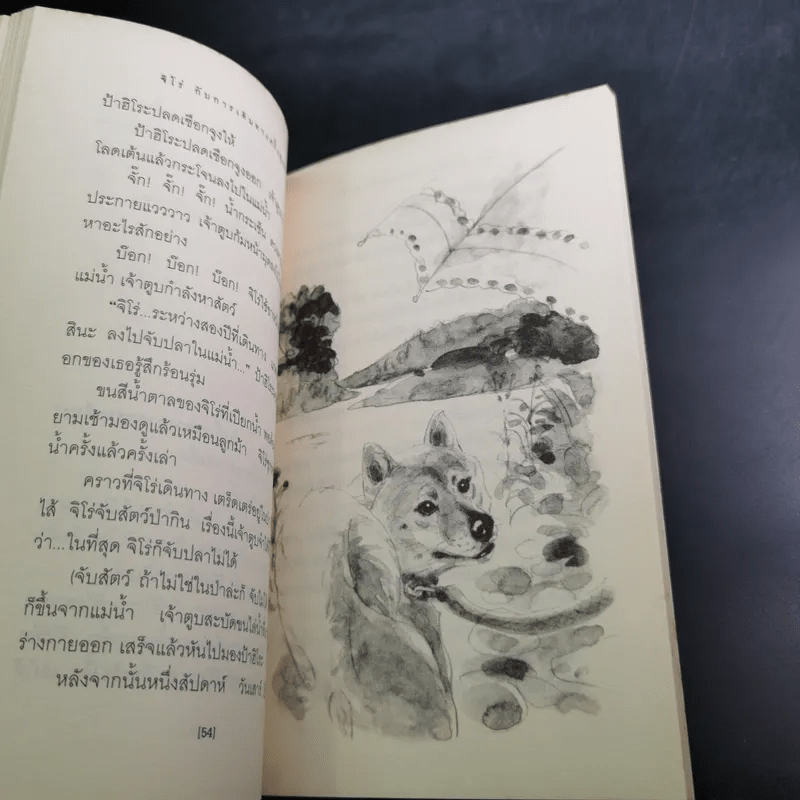 จิโร่ กับการเดินทาง
ป้าฮิโระปลดเชือกจูงให้
ป้าฮิโระปลดเชือกจูงออก
โลดเต้นแล้วกระโจนลงไปในแม่น้ำ
จั๊ก! จั๊ก! จั๊ก! น้ำกระเซ็น
ประกายแวววาว เจ้าตูบก้มหน้า
หาอะไรสักอย่าง
บ๊อก! บ๊อก! บ๊อก! จิโร่
แม่น้ำ เจ้าตูบกำลังหาสัตว์
“จิโร่...ระหว่างสองปีที่เดินทาง
สินะ ลงไปจับปลาในแม่น้ำ...” ป้าฮิโระ
อกของเธอรู้สึกร้อนรุ่ม
ขนสีน้ำตาลของจิโร่ที่เปียกน้ำ
ยามเช้ามองดูแล้วเหมือนลูกม้า
น้ำครั้งแล้วครั้งเล่า
คราวที่จิโร่เดินทาง เตร็ดเตร่อยู่
ไส้ จิโร่จับสัตว์ป่ากิน เรื่องนี้เจ้าตูบ
ว่า...ในที่สุด จิโร่ก็จับปลาไม่ได้
(จับสัตว์ ถ้าไม่ใช่ในป่าล่ะก็
ก็ขึ้นจากแม่น้ำ เจ้าตูบสะบัดขน
ร่างกายออก เสร็จแล้วหันไปมองป้าฮิโระ
หลังจากนั้นหนึ่งสัปดาห์
[54]